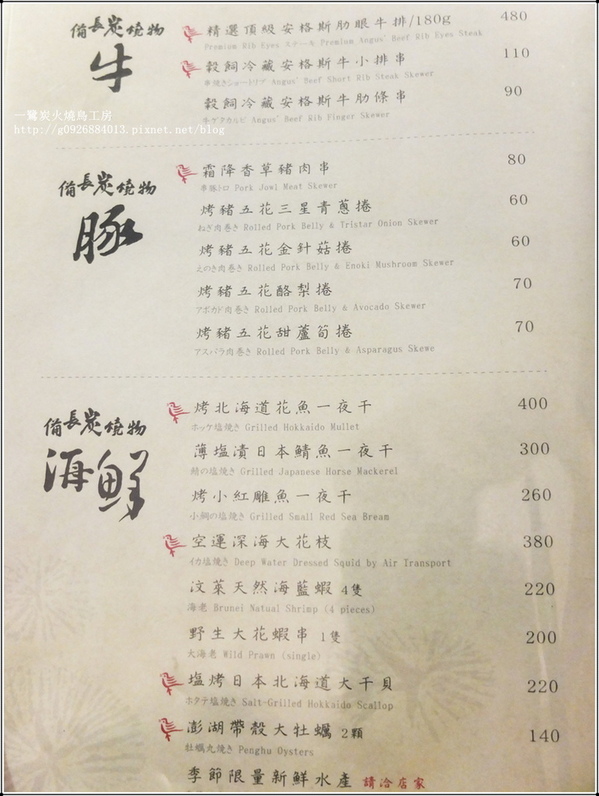 備長炭燒物
牛
精選頂級安格斯肋眼牛排/180g 480
Premium Rib Eyes ステーキ Premium Angus' Beef Rib Eyes Steak
穀飼冷藏安格斯牛小排串 110
串焼きショートリブ Angus' Beef Short Rib Steak Skewer
穀飼冷藏安格斯牛肋條串 90
牛ゲタカルビ Angus' Beef Rib Finger Skewer
一鷺炭火燒鳥工房
http://g0926884013.pixnet.net/blog
備長炭燒物
豚
霜降香草豬肉串 80
串豚トロ Pork Jowl Meat Skewer
烤豬五花三星青蔥捲 60
ねぎ肉巻き Rolled Pork Belly & Tristar Onion Skewer
烤豬五花金針菇捲 60
えのき肉巻き Rolled Pork Belly & Enoki Mushroom Skewer
烤豬五花酪梨捲 70
アボカド肉巻き Rolled Pork Belly & Avocado Skewer
烤豬五花甜蘆筍捲 70
アスパラ肉巻き Rolled Pork Belly & Asparagus Skewe
備長炭燒物
海鮮
烤北海道花魚一夜干 400
ホッケ塩焼き Grilled Hokkaido Mullet
薄塩漬日本鯖魚一夜干 300
鯖の塩焼き Grilled Japanese Horse Mackerel
烤小紅雕魚一夜干 260
小鯛の塩焼き Grilled Small Red Sea Bream
空運深海大花枝 380
イカ塩焼き Deep Water Dressed Squid by Air Transport
汶萊天然海藍蝦 4隻 220
海老 Brunei Natual Shrimp (4 pieces)
野生大花蝦串 1隻 200
大海老 Wild Prawn (single)
塩烤日本北海道大干貝 220
ホタテ塩焼き Salt-Grilled Hokkaido Scallop
澎湖帶殼大牡蠣 2顆 140
牡蠣丸焼き Penghu Oysters
季節限量新鮮水產 請洽店家